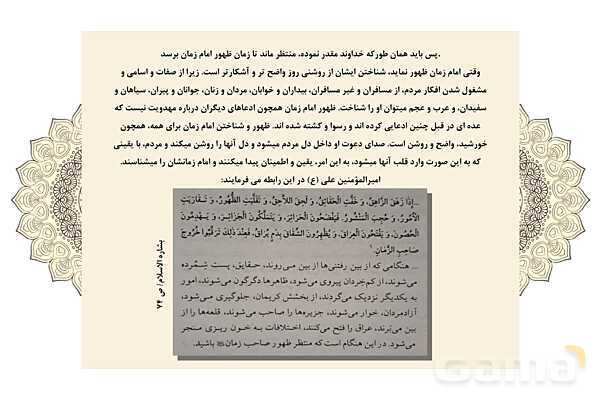 پس باید همان طورکه خداوند مقدر نموده، منتظر ماند تا زمان ظهور امام زمان برسد.
وقتی امام زمان ظهور نماید، شناختن ایشان از روشنی روز واضح تر و آشکارتر است. زیرا از صفات و اسامی و
مشغول شدن افکار مردم، از مسافران و غیر مسافران، بیداران و خوابان، مردان و زنان، جوانان و پیران، سیاهان و
سفیدان، و عرب و عجم میتوان او را شناخت. ظهور امام زمان همچون ادعاهای دیگران درباره مهدویت نیست که
عده ای در قبل چنین ادعایی کرده اند و رسوا و کشته شده اند. ظهور و شناختن امام زمان برای همه، همچون
خورشید، واضح و روشن است. صدای دعوت او داخل دل مردم میشود و دل آنها را روشن میکند و مردم، با یقینی
که به این صورت وارد قلب آنها میشود، به این امر، یقین و اطمینان پیدا میکنند و امام زمانشان را میشناسند.
امیرالمؤمنین علی (ع) در این رابطه می فرمایند:
...إذا زَهَقَ الزّاهِقُ، وَ خَفَّتِ الحَقائِقُ، وَ لَحِقَ اللّاحِقُ، وَ ثَقُلَتِ الظُّهُورُ، وَ تَقارَبَتِ
الأُمُورُ، وَ حُجِبَ المَنْشُورُ، فَيُفْضِحُونَ الحَرائِرَ، وَ يَتَمَلَّكُونَ الجَزائِرَ، وَ يَهْدِمُونَ
الحُصُونَ، وَ يَفْتَحُونَ العِراقَ، وَ يُظْهِرُونَ الشِّقاقَ بِدَمٍ يُراقُ، فَعِنْدَ ذلِكَ تَرَقَّبُوا خُرُوجَ
صاحِبِ الزَّمانِ.
... هنگامی که از بین رفتنی‌ها از بین می‌روند، حقایق، پست شمرده
می‌شوند، از کم‌خردان پیروی می‌شود، ظاهرها دگرگون می‌شوند، امور
به یکدیگر نزدیک می‌گردند، از بخشش کریمان، جلوگیری می‌شود،
آزادمردان، خوار می‌شوند، جزیره‌ها را صاحب می‌شوند، قلعه‌ها را از
بین می‌برند، عراق را فتح می‌کنند، اختلافات به خون ریزی منجر
می‌شود. در این هنگام است که منتظر ظهور صاحب زمان باشید.
بشاره الاسلام/ ص ۷۴
Gama